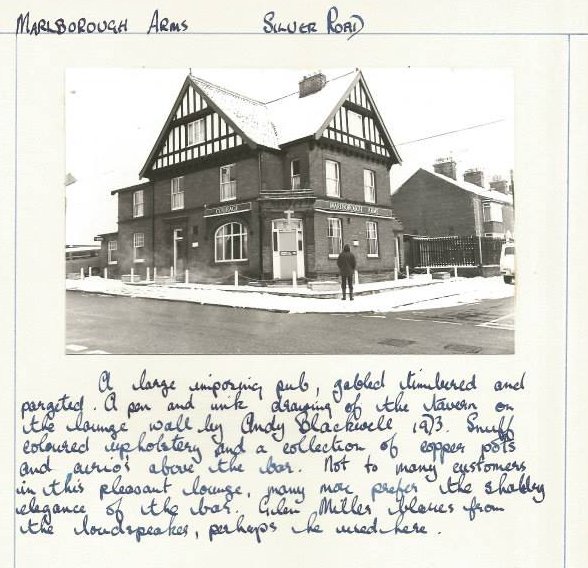 MARLBOROUGH ARMS SILVER ROAD
COURAGE
MARLBOROUGH ARMS
A large imposing pub, gabled timbered and
pargeted. A pen and ink drawing of the tavern on
the lounge wall by Andy Blackwell 1973. Snuff
coloured upholstery and a collection of copper pots
and curios above the bar. Not to many customers
in this pleasant lounge, many more prefer the shabby
elegance of the bar. Glen Miller blares from
the loudspeaker, perhaps he used here.